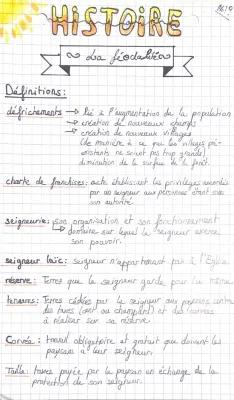 HISTOIRE
La féodalité
Définitions:
défrichements → lié à l'augmentation de la population
→ création de nouveaux champs
→ création de nouveaux villages
(de manière à ce que les villages pré-
existants ne soient pas trop grands)
diminution de la surface de la forêt.
charte de franchises: acte établissant les privilèges accordés
par un seigneur aux personnes étant sous
son autorité.
seigneurie: son organisation et son fonctionnement
domaine sur lequel le seigneur exerce
son pouvoir.
seigneur laïc: seigneur n'appartenant pas à l'Eglise
réserve: Terres que le seigneur garde pour lui même
tenures: Terres cédées par le seigneur aux paysans contre
des taxes (cens ou champart) et des corvées
à réaliser sur sa réserve
Corvée: travail obligatoire et gratuit que doivent les
paysans à leur seigneur.
Taille: taxes payée par le paysan en échange de la
protection de son seigneur.